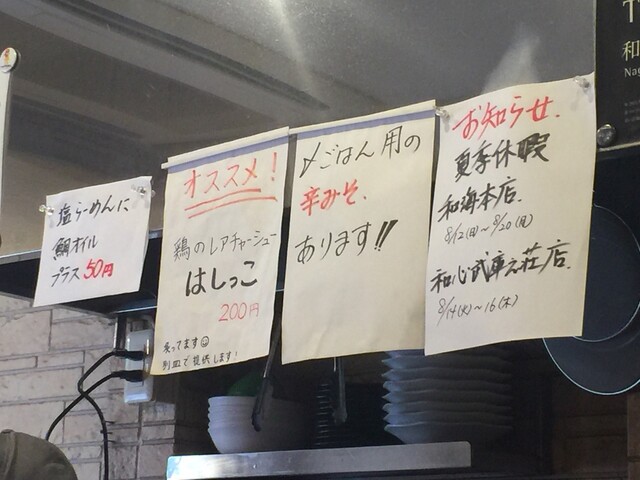 塩らーめんに
鯛オイル
プラス50円
オススメ!
鶏のレアチャーシュー
はしっこ
200円
炙ってます☺
別皿で提供します!
〆ごはん用の
辛みそ.
あります!!
お知らせ.
夏季休暇
和海本店.
8/12(日)~8/20(月)
和心武庫之荘店.
8/14(火)~16(木)
和
Nag